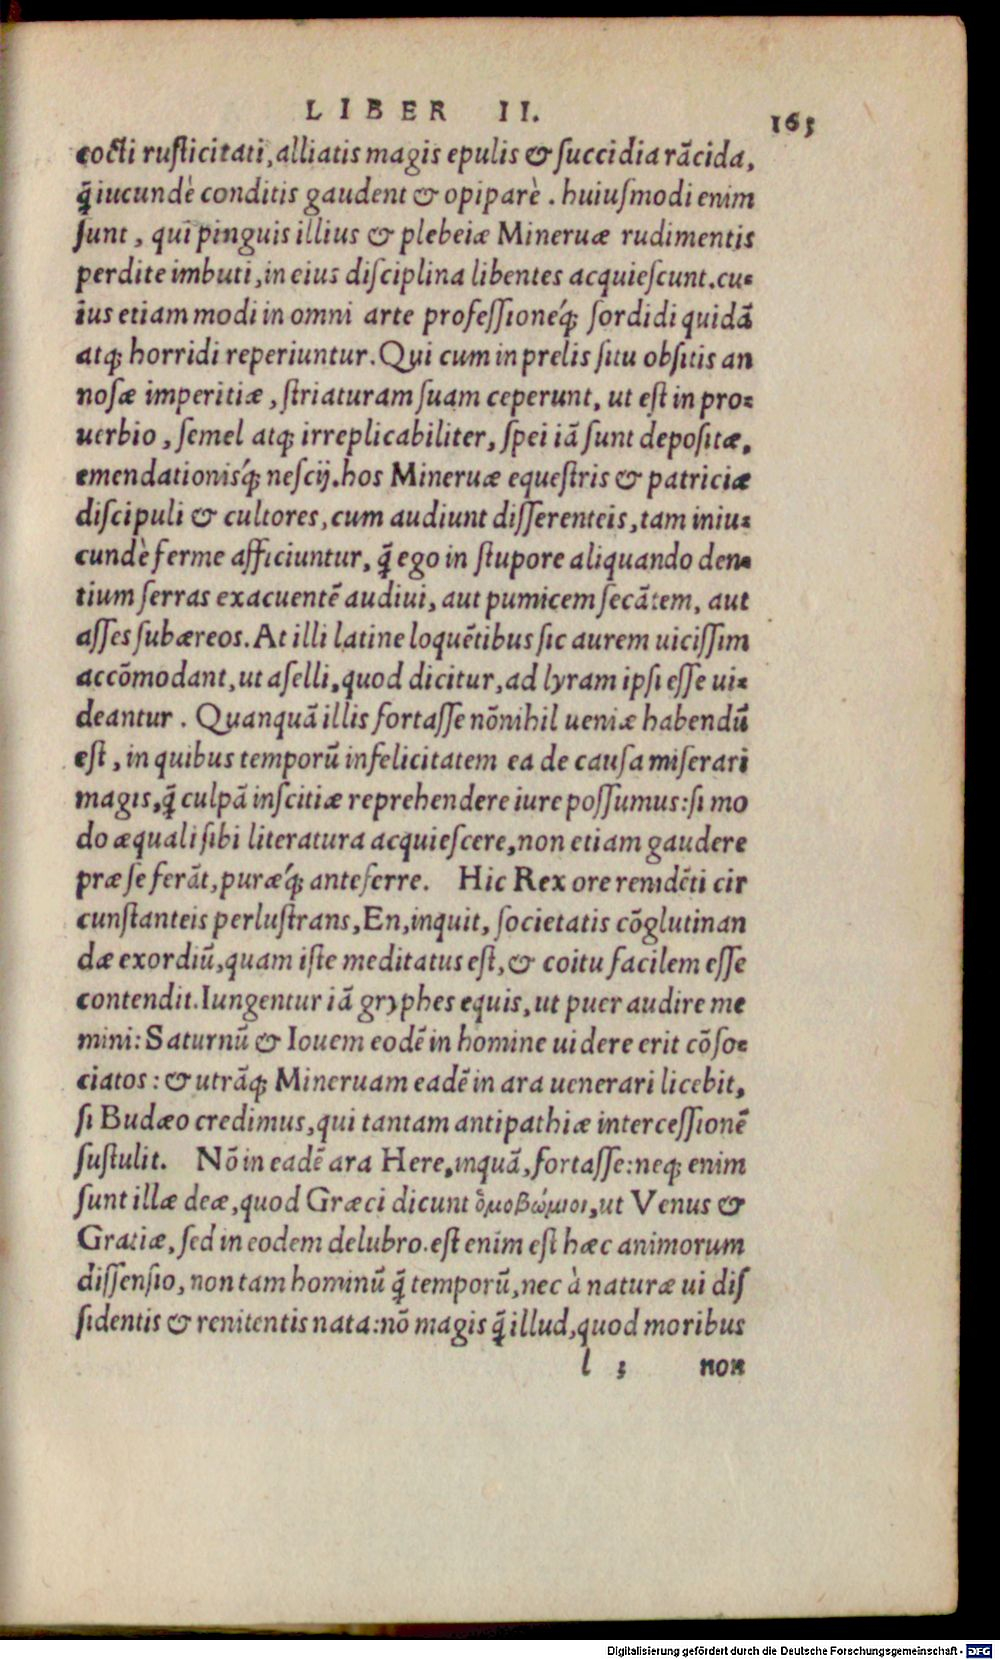 LIBER II.
165
cocti rusticitati, alliatis magis epulis & succidia rācida,
q̄ iucundè conditis gaudent & opiparè. huiusmodi enim
sunt, qui pinguis illius & plebeiæ Mineruæ rudimentis
perdite imbuti, in eius disciplina libentes acquiescunt. cu-
ius etiam modi in omni arte professioneq́; sordidi quidā
atq; horridi reperiuntur. Qui cum in prelis situ obsitis an
nosæ imperitiæ, striaturam suam ceperunt, ut est in pro-
uerbio, semel atq; irreplicabiliter, spei iā sunt depositæ,
emendationisq́; nescij. hos Mineruæ equestris & patriciæ
discipuli & cultores, cum audiunt disserenteis, tam iniu-
cundè ferme afficiuntur, q̄ ego in stupore aliquando den-
tium serras exacuentē audiui, aut pumicem secātem, aut
asses subæreos. At illi latine loquētibus sic aurem uicissim
accōmodant, ut aselli, quod dicitur, ad lyram ipsi esse ui-
deantur. Quanquā illis fortasse nōnihil ueniæ habendū
est, in quibus temporū infelicitatem ea de causa miserari
magis, q̄ culpā inscitiæ reprehendere iure possumus: si mo
do æquali sibi literatura acquiescere, non etiam gaudere
præ se ferāt, puræq́; anteferre. Hic Rex ore renidēti cir
cunstanteis perlustrans, En, inquit, societatis cōglutinan
dæ exordiū, quam iste meditatus est, & coitu facilem esse
contendit. Iungentur iā gryphes equis, ut puer audire me
mini: Saturnū & Iouem eodē in homine uidere erit cōso-
ciatos: & utrāq; Mineruam eadē in ara uenerari licebit,
si Budæo credimus, qui tantam antipathiæ intercessionē
sustulit. Nō in eadē ara Here, inquā, fortasse: neq; enim
sunt illæ deæ, quod Græci dicunt ὁμοβώμιοι, ut Venus &
Gratiæ, sed in eodem delubro. est enim est hæc animorum
dissensio, non tam hominū q̄ temporū, nec à naturæ ui dis
sidentis & renitentis nata: nō magis q̄ illud, quod moribus
l 5 non
Digitalisierung gefördert durch die Deutsche Forschungsgemeinschaft - DFG